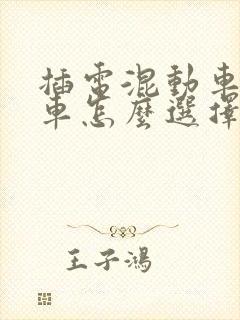 插電混動車
車怎麼選擇
王子鴻